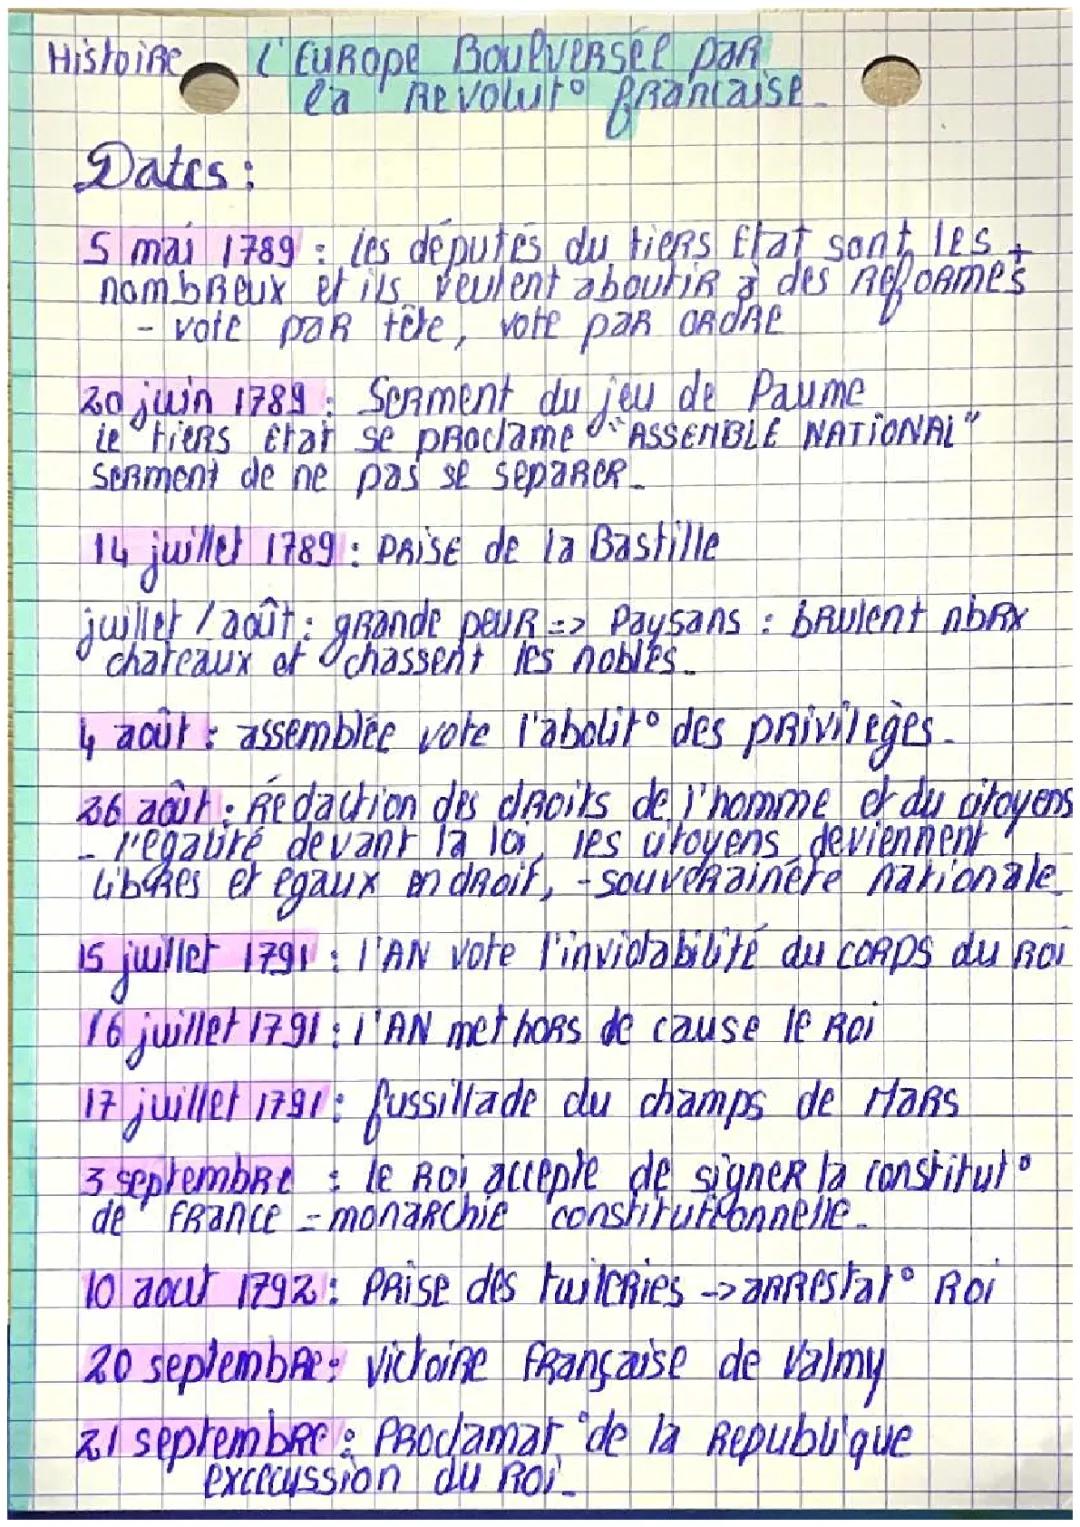 Histoire L'Europe Boulversée par
la Revolut° française.
Dates :
5 mai 1789 : les députés du tiers Etat sont les +
nombreux et ils veulent aboutir à des reformes
- vote par tête, vote par ordre
20 juin 1789 : Serment du jeu de Paume
le tiers Etat se proclame "ASSEMBLÉ NATIONAL"
serment de ne pas se separer.
14 juillet 1789 : prise de la Bastille
juillet / août : grande peur => Paysans : brulent nbrx
chateaux et chassent les nobles.
4 août : assemblée vote l'abolit° des privilèges.
26 août : Rédaction des droits de l'homme et du citoyens
- l'égalité devant la loi, les citoyens deviennent
libres et égaux en droit, - souveraineté nationale.
15 juillet 1791 : l'AN vote l'inviolabilité du corps du roi
16 juillet 1791 : l'AN met hors de cause le Roi
17 juillet 1791 : fussillade du champs de Mars
3 septembre : le Roi accepte de signer la constitut°
de France = monarchie constitutionnelle.
10 aout 1792 : Prise des tuileries -> arrestat° Roi
20 septembre : victoire française de Valmy
21 septembre : Proclamat° de la Republique
excecussion du Roi.